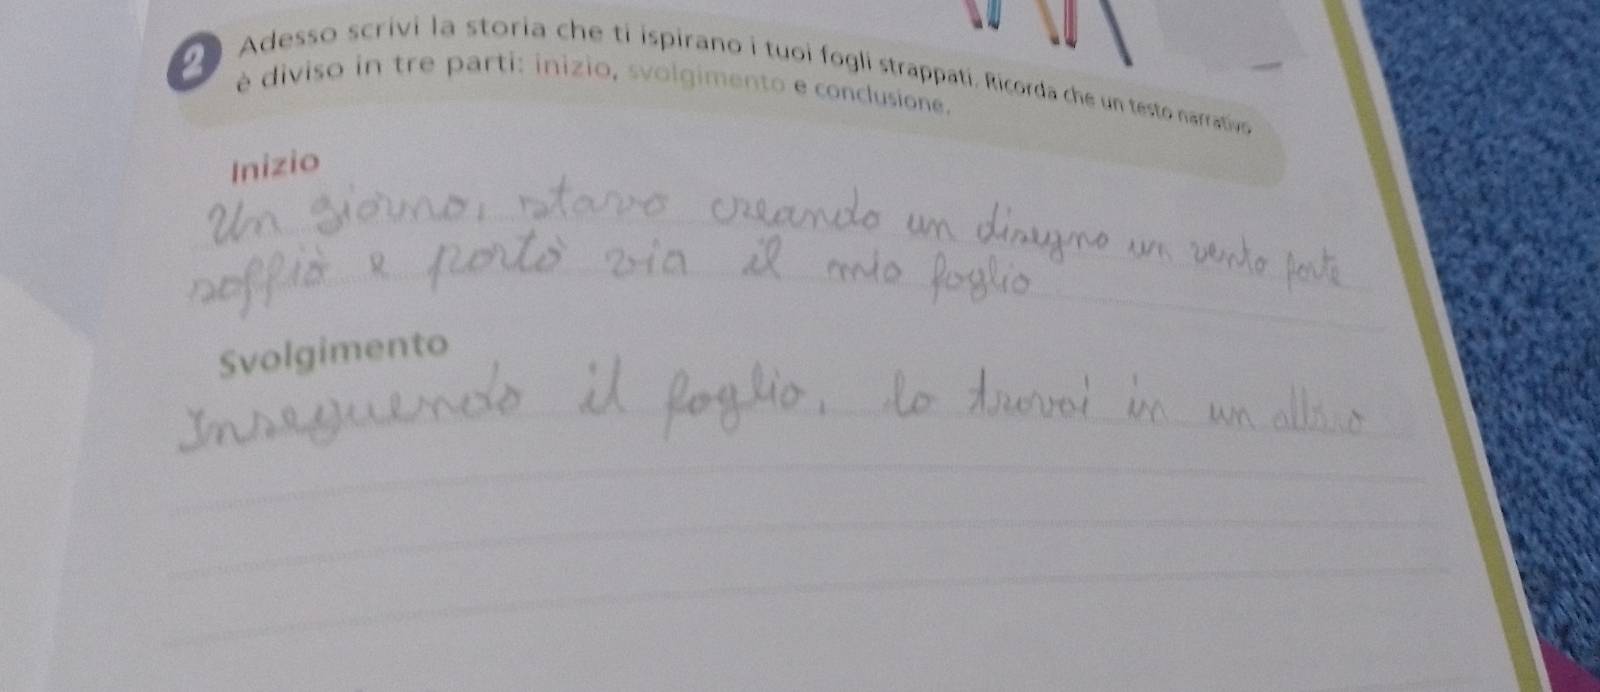 2 Adesso scrivi la storia che ti ispirano i tuoi fogli strappati. Ricorda che un testo narrativo
è diviso in tre parti: inizio, svolgimento e conclusione.
Inizio
Un giorno, stavo creando un disegno un vento forte
soffiò e portò via il mio foglio
Svolgimento
Inseguendo il foglio, lo trovai in un albero